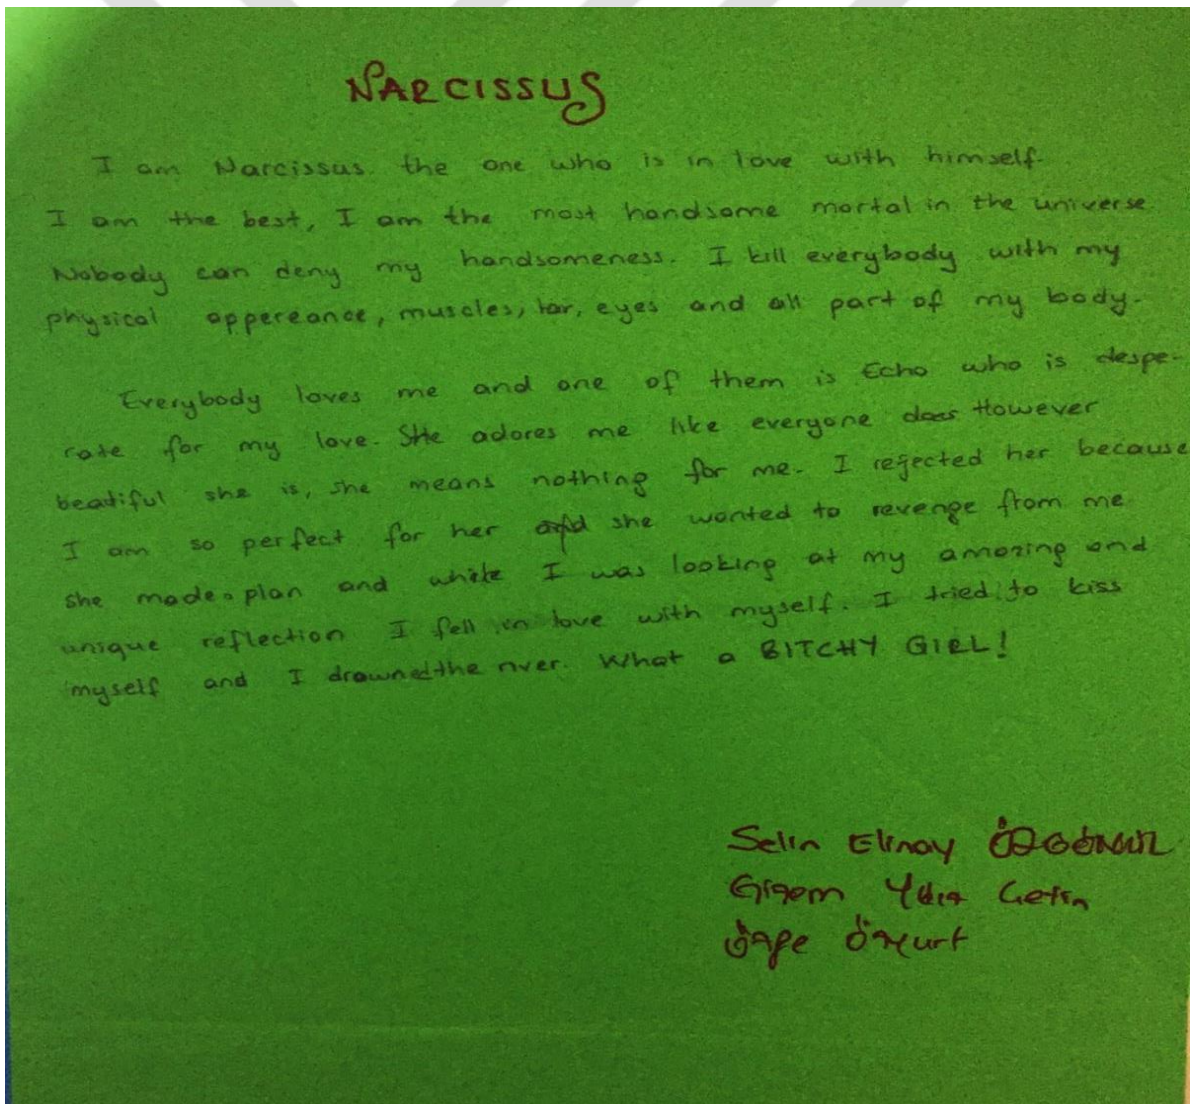 NARCISSUS
I am Narcissus. the one who is in love with himself.
I am the best, I am the most handsome mortal in the universe.
Nobody can deny my handsomeness. I kill everybody with my
physical appereance, muscles, har, eyes and all part of my body.
Everybody loves me and one of them is Echo who is despe-
rate for my love. She adores me like everyone does However
beatiful she is, she means nothing for me. I rejected her because
I am so perfect for her and she wanted to revenge from me
she made a plan and while I was looking at my amazing and
unique reflection I fell in love with myself. I tried to kiss
myself and I drowned the river. What a BITCHY GIRL!
Selin Elinay
Gizem Çetin
Özge Özyurt